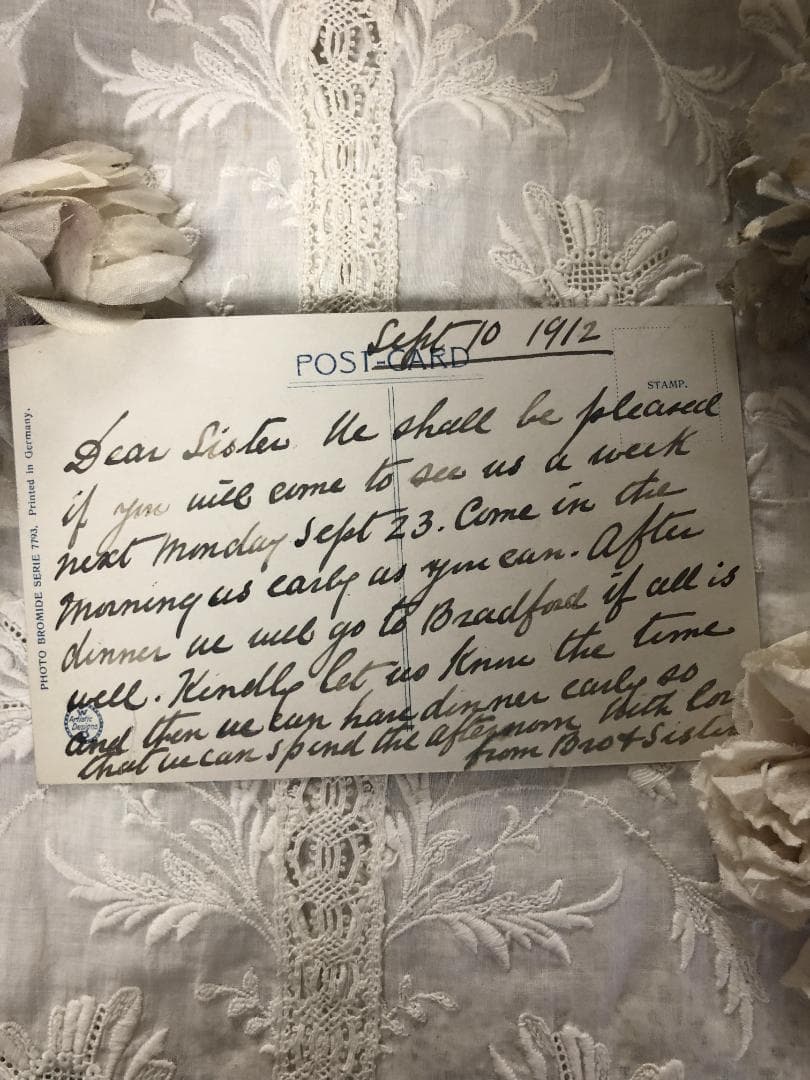 Sept 10 1912
POST-CARD
STAMP.
Dear Sister We shall be pleased
if you will come to see us a week
next Monday Sept 23. Come in the
Morning as early as you can. After
dinner we will go to Bradford if all is
well. Kindly let us know the time
and then we can have dinner early so
that we can spend the afternoon with lov
from Bro & Sister
PHOTO BROMIDE SERIE 7793. Printed in Germany.
Artistic
Designs